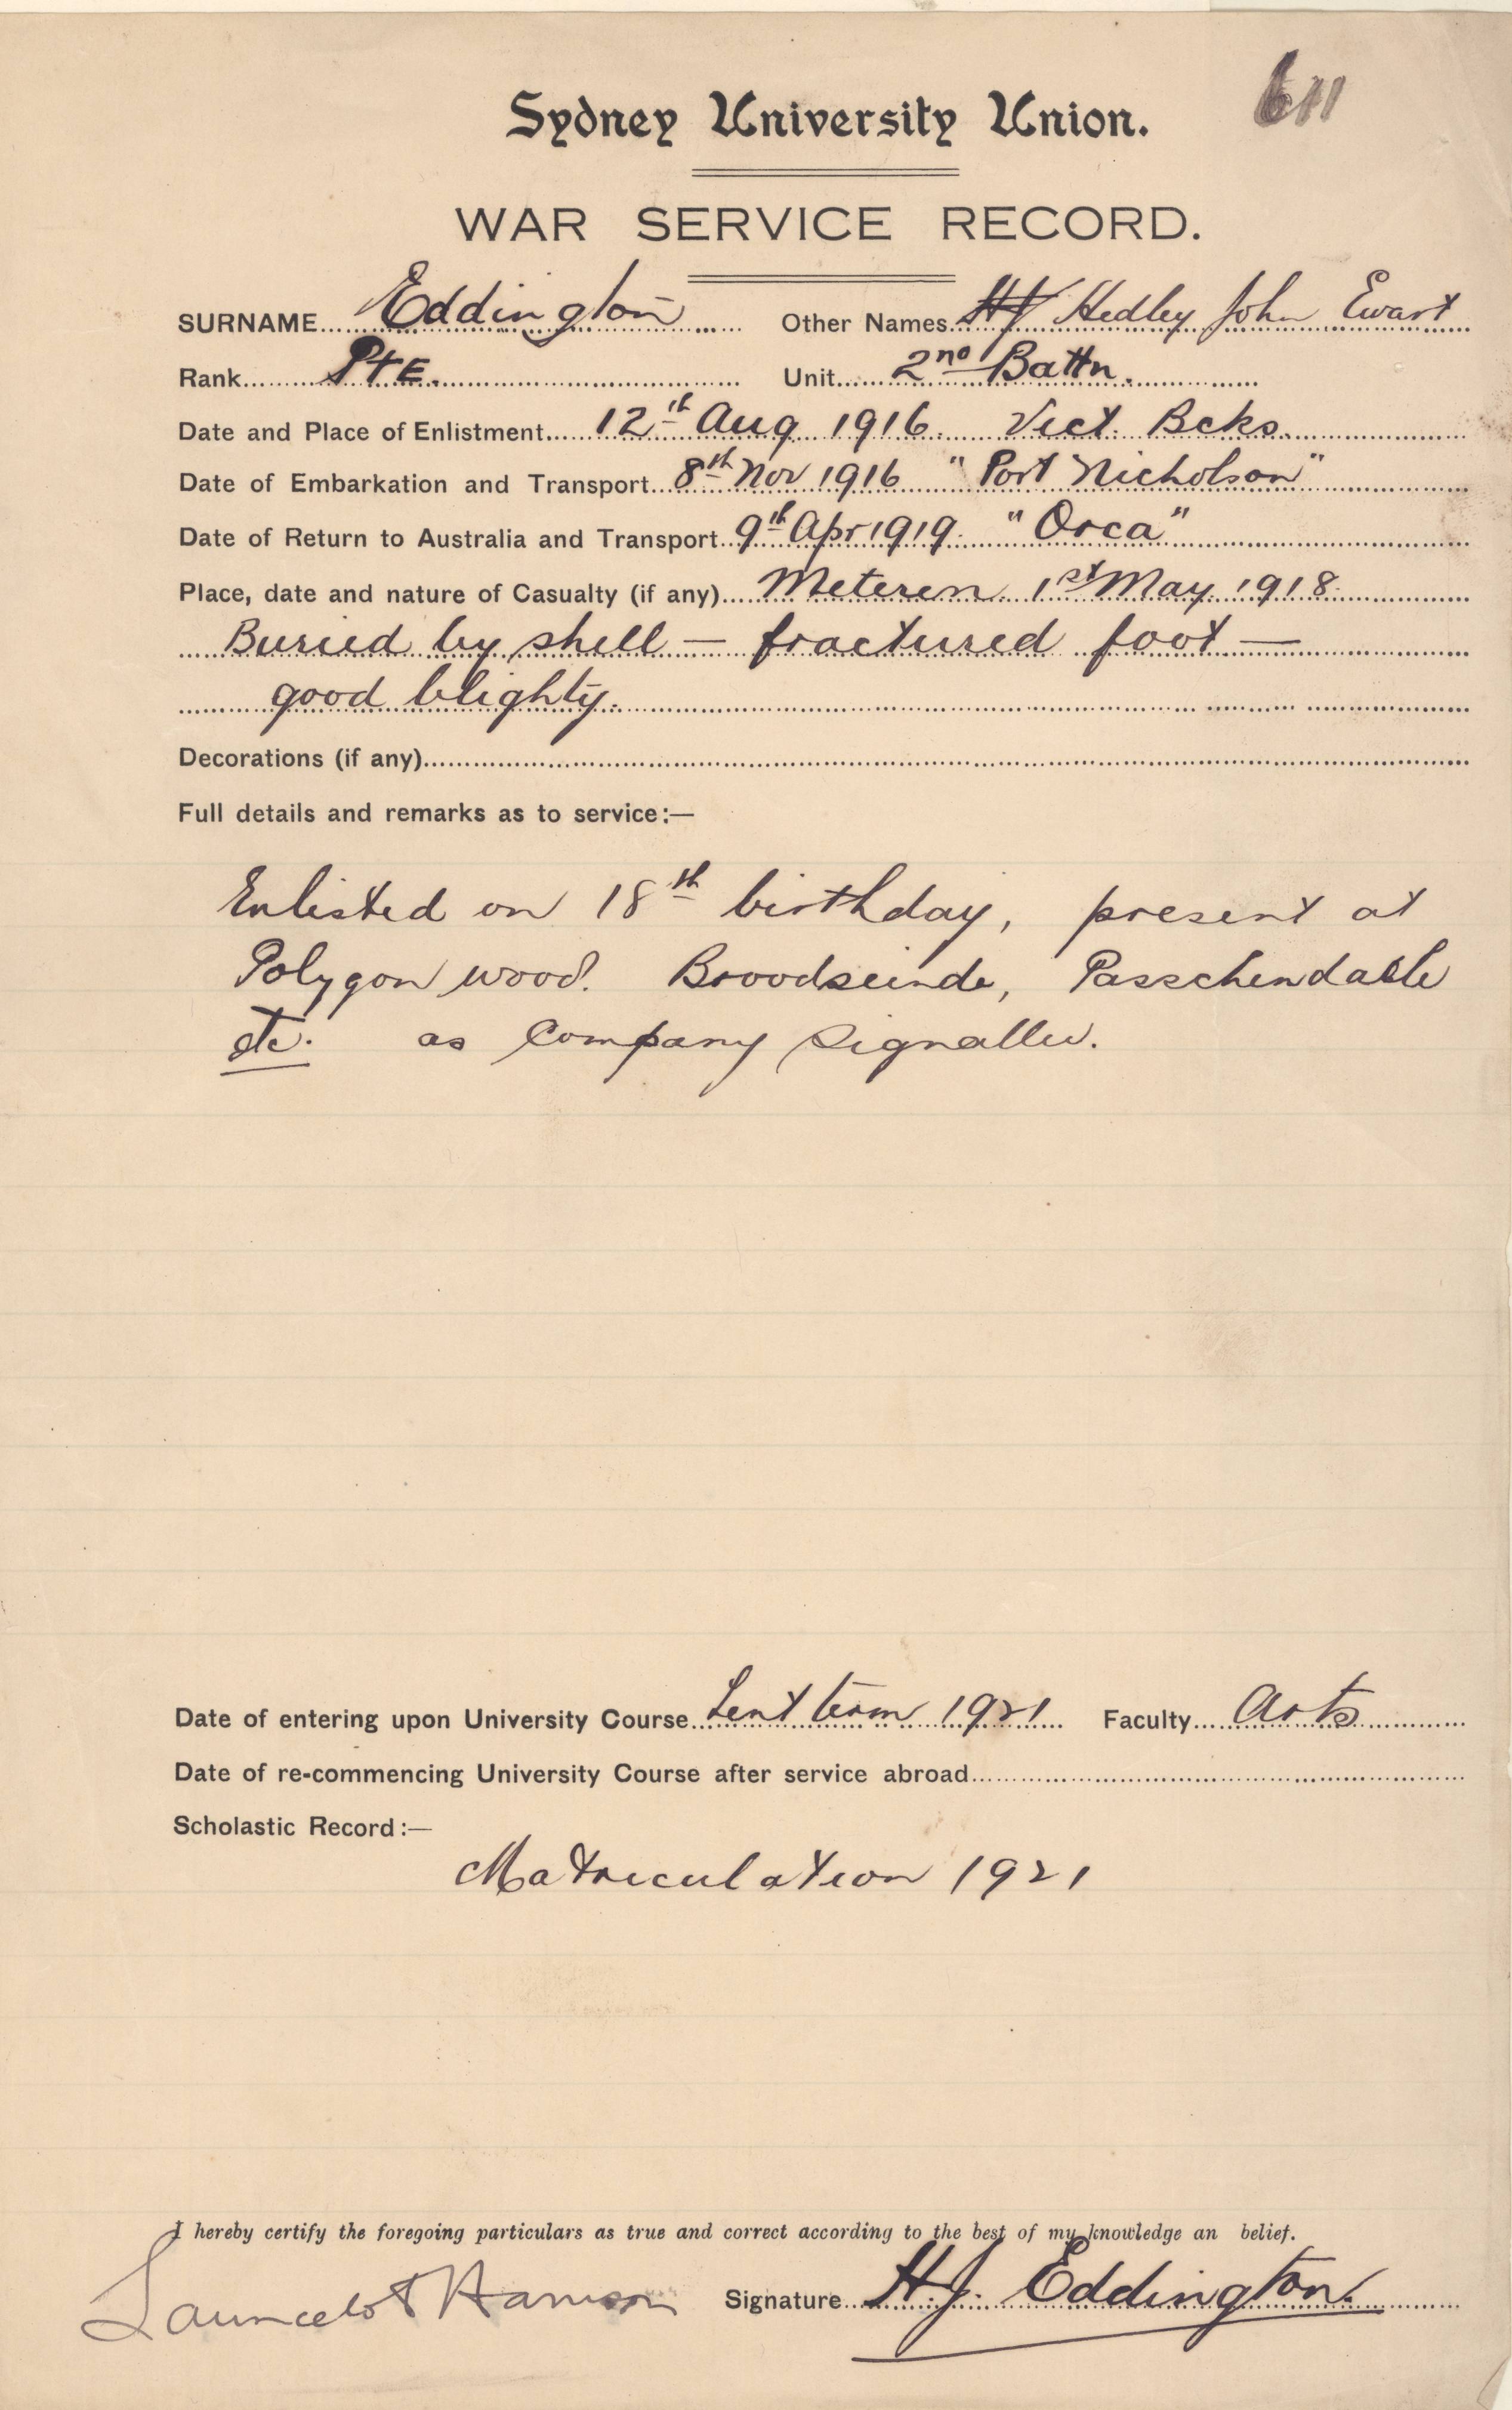 611
Sydney University Union.
WAR SERVICE RECORD.
SURNAME Eddington Other Names HJ Hedley John Ewart
Rank Pte. Unit 2nd Battn.
Date and Place of Enlistment 12th Aug 1916. Vict. Bcks.
Date of Embarkation and Transport 8th Nov 1916 "Port Nicholson"
Date of Return to Australia and Transport 9th Apr 1919. "Orca"
Place, date and nature of Casualty (if any) Meteren. 1st May. 1918.
Buried by shell — fractured foot —
good blighty.
Decorations (if any)
Full details and remarks as to service:—
Enlisted on 18th birthday, present at
Polygon wood. Broodseinde, Passchendaele
etc. as Company Signaller.
Date of entering upon University Course Lent term 1921 Faculty Arts
Date of re-commencing University Course after service abroad
Scholastic Record:—
Matriculation 1921
I hereby certify the foregoing particulars as true and correct according to the best of my knowledge an belief.
Launcelot Harrison Signature H.J. Eddington.